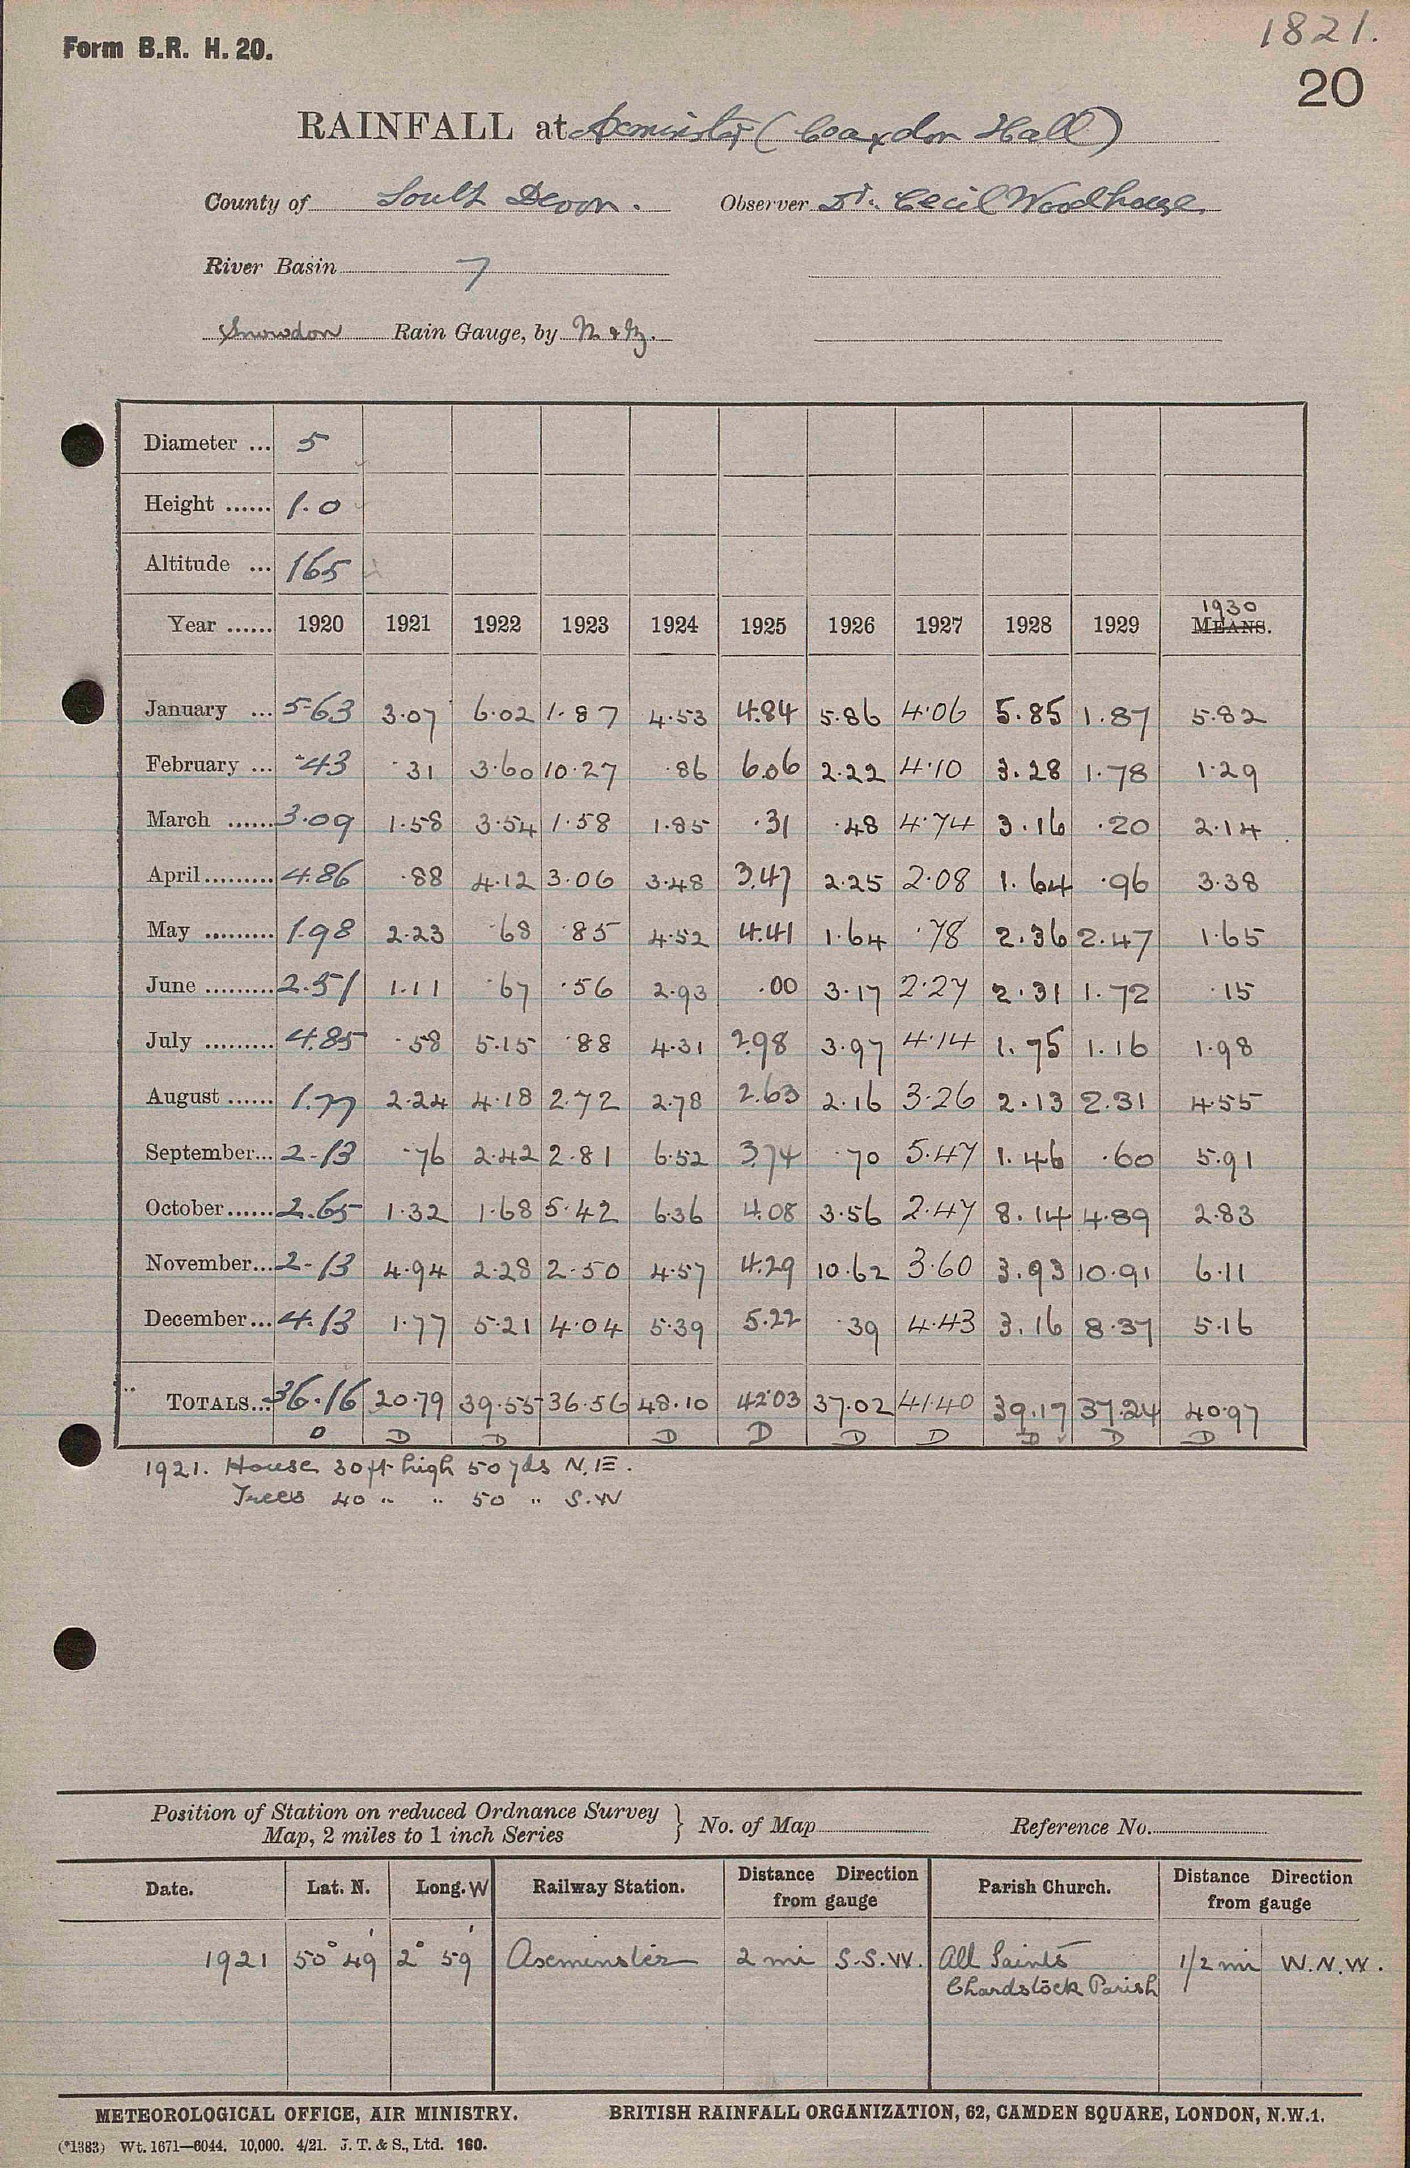 1821.
Form B.R. H. 20.
20
RAINFALL at Axminster (Coaxdon Hall)
County of South Devon. Observer Dr. Cecil Woodhouse
River Basin 7
Snowdon Rain Gauge, by N & Z.
Diameter ... 5
Height ...... 1.0
Altitude ... 165
Year ...... 1920 1921 1922 1923 1924 1925 1926 1927 1928 1929 1930 MEANS.
January ... 5.63 3.07 6.02 1.87 4.53 4.84 5.86 4.06 5.85 1.87 5.82
February ... .43 .31 3.60 10.27 .86 6.06 2.22 4.10 3.28 1.78 1.29
March ...... 3.09 1.58 3.54 1.58 1.85 .31 .48 4.74 3.16 .20 2.14
April ......... 4.86 .88 4.12 3.06 3.48 3.47 2.25 2.08 1.64 .96 3.38
May ......... 1.98 2.23 .68 .85 4.52 4.41 1.64 .78 2.36 2.47 1.65
June ......... 2.51 1.11 .67 .56 2.93 .00 3.17 2.27 2.31 1.72 .15
July ......... 4.85 .58 5.15 .88 4.31 2.98 3.97 4.14 1.75 1.16 1.98
August ...... 1.77 2.24 4.18 2.72 2.78 2.63 2.16 3.26 2.13 2.31 4.55
September... 2.13 .76 2.42 2.81 6.52 3.74 .70 5.47 1.46 .60 5.91
October ...... 2.65 1.32 1.68 5.42 6.36 4.08 3.56 2.47 8.14 4.89 2.83
November... 2.13 4.94 2.28 2.50 4.57 4.29 10.62 3.60 3.93 10.91 6.11
December... 4.13 1.77 5.21 4.04 5.39 5.22 .39 4.43 3.16 8.37 5.16
TOTALS... 36.16 20.79 39.55 36.56 48.10 42.03 37.02 41.40 39.17 37.24 40.97
D D D D D D D D D D
1921. House 30 ft high 50 yds N.E.
Trees 40 " " 50 " S.W
Position of Station on reduced Ordnance Survey
Map, 2 miles to 1 inch Series } No. of Map Reference No.
Date. Lat. N. Long. W Railway Station. Distance Direction from gauge Parish Church. Distance Direction from gauge
1921 50° 49' 2° 59' Axminster 2 mi S.S.W. All Saints 1/2 mi W.N.W.
Chardstock Parish
METEOROLOGICAL OFFICE, AIR MINISTRY. BRITISH RAINFALL ORGANIZATION, 62, CAMDEN SQUARE, LONDON, N.W.1.
(*1383) Wt. 1671—6044. 10,000. 4/21. J. T. & S., Ltd. 160.